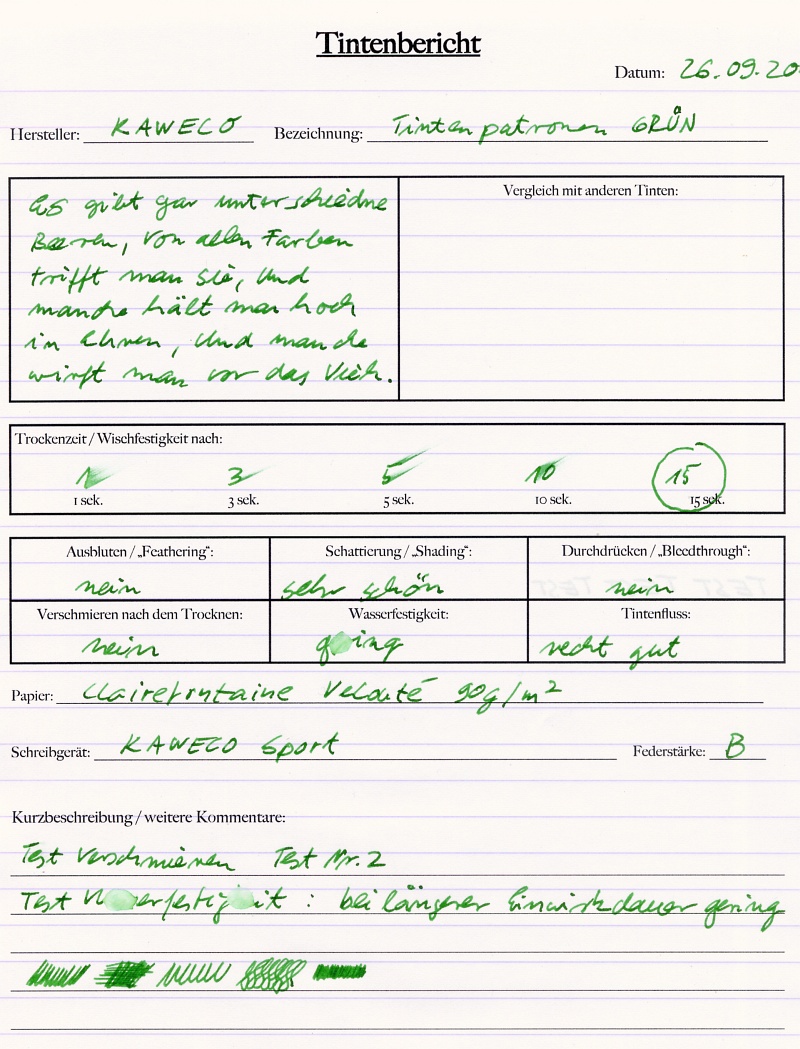 Tintenbericht
Datum: 26.09.20
Hersteller: KAWECO Bezeichnung: Tintenpatronen GRÜN
Es gibt gar unterschiedne
Beeren, von allen Farben
trifft man sie, und
manche hält man hoch
in Ehren, und manche
wirft man vor das Vieh.
Vergleich mit anderen Tinten:
Trockenzeit / Wischfestigkeit nach:
1 3 5 10 15
1 sek. 3 sek. 5 sek. 10 sek. 15 sek.
Ausbluten / „Feathering“: Schattierung / „Shading“: Durchdrücken / „Bleedthrough“:
nein sehr schön nein
Verschmieren nach dem Trocknen: Wasserfestigkeit: Tintenfluss:
nein recht gut
Papier: Clairefontaine Velouté 90g/m²
Schreibgerät: KAWECO Sport Federstärke: B
Kurzbeschreibung / weitere Kommentare:
Test Verschmieren Test Nr. 2
Test : bei längerer Einwirkdauer gering